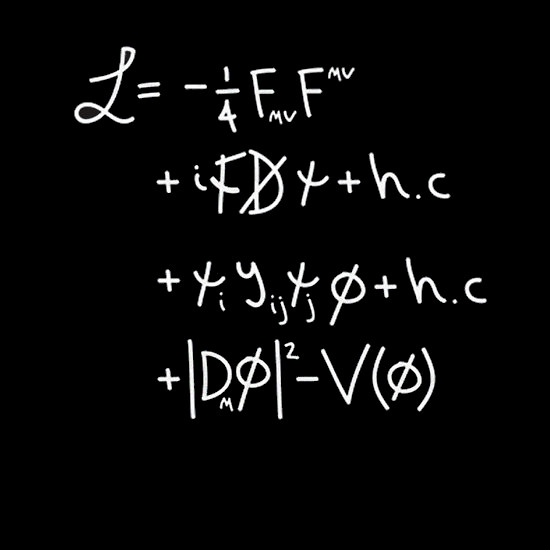 ℒ = -1/4 F_{μν} F^{μν}
+ iψ̄D̸ψ + h.c
+ ψ_i y_{ij} ψ_j φ + h.c
+ |D_μ φ|² - V(φ)